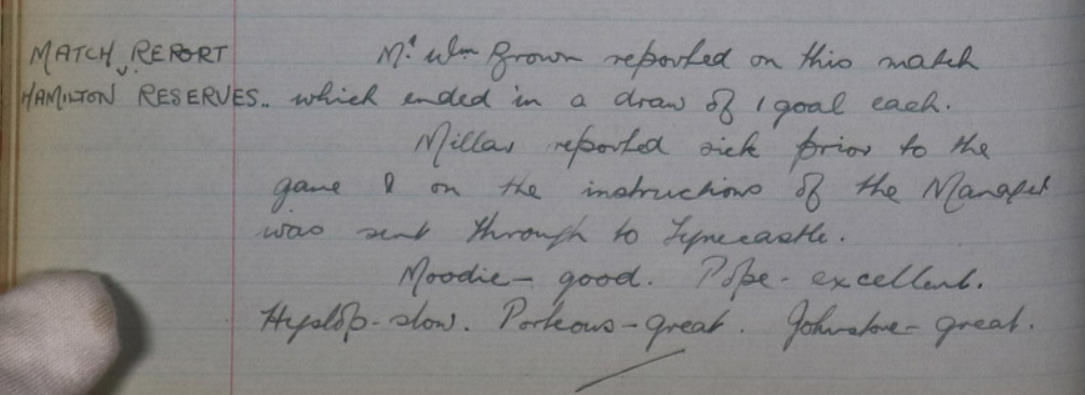 MATCH REPORT Mr Wm Brown reported on this match
HAMILTON RESERVES.. which ended in a draw of 1 goal each.
Millar reported sick prior to the
game & on the instructions of the Manager
was sent through to Tynecastle.
Moodie - good. Pope - excellent.
Hyslop - slow. Porteous - great. Johnstone - great.